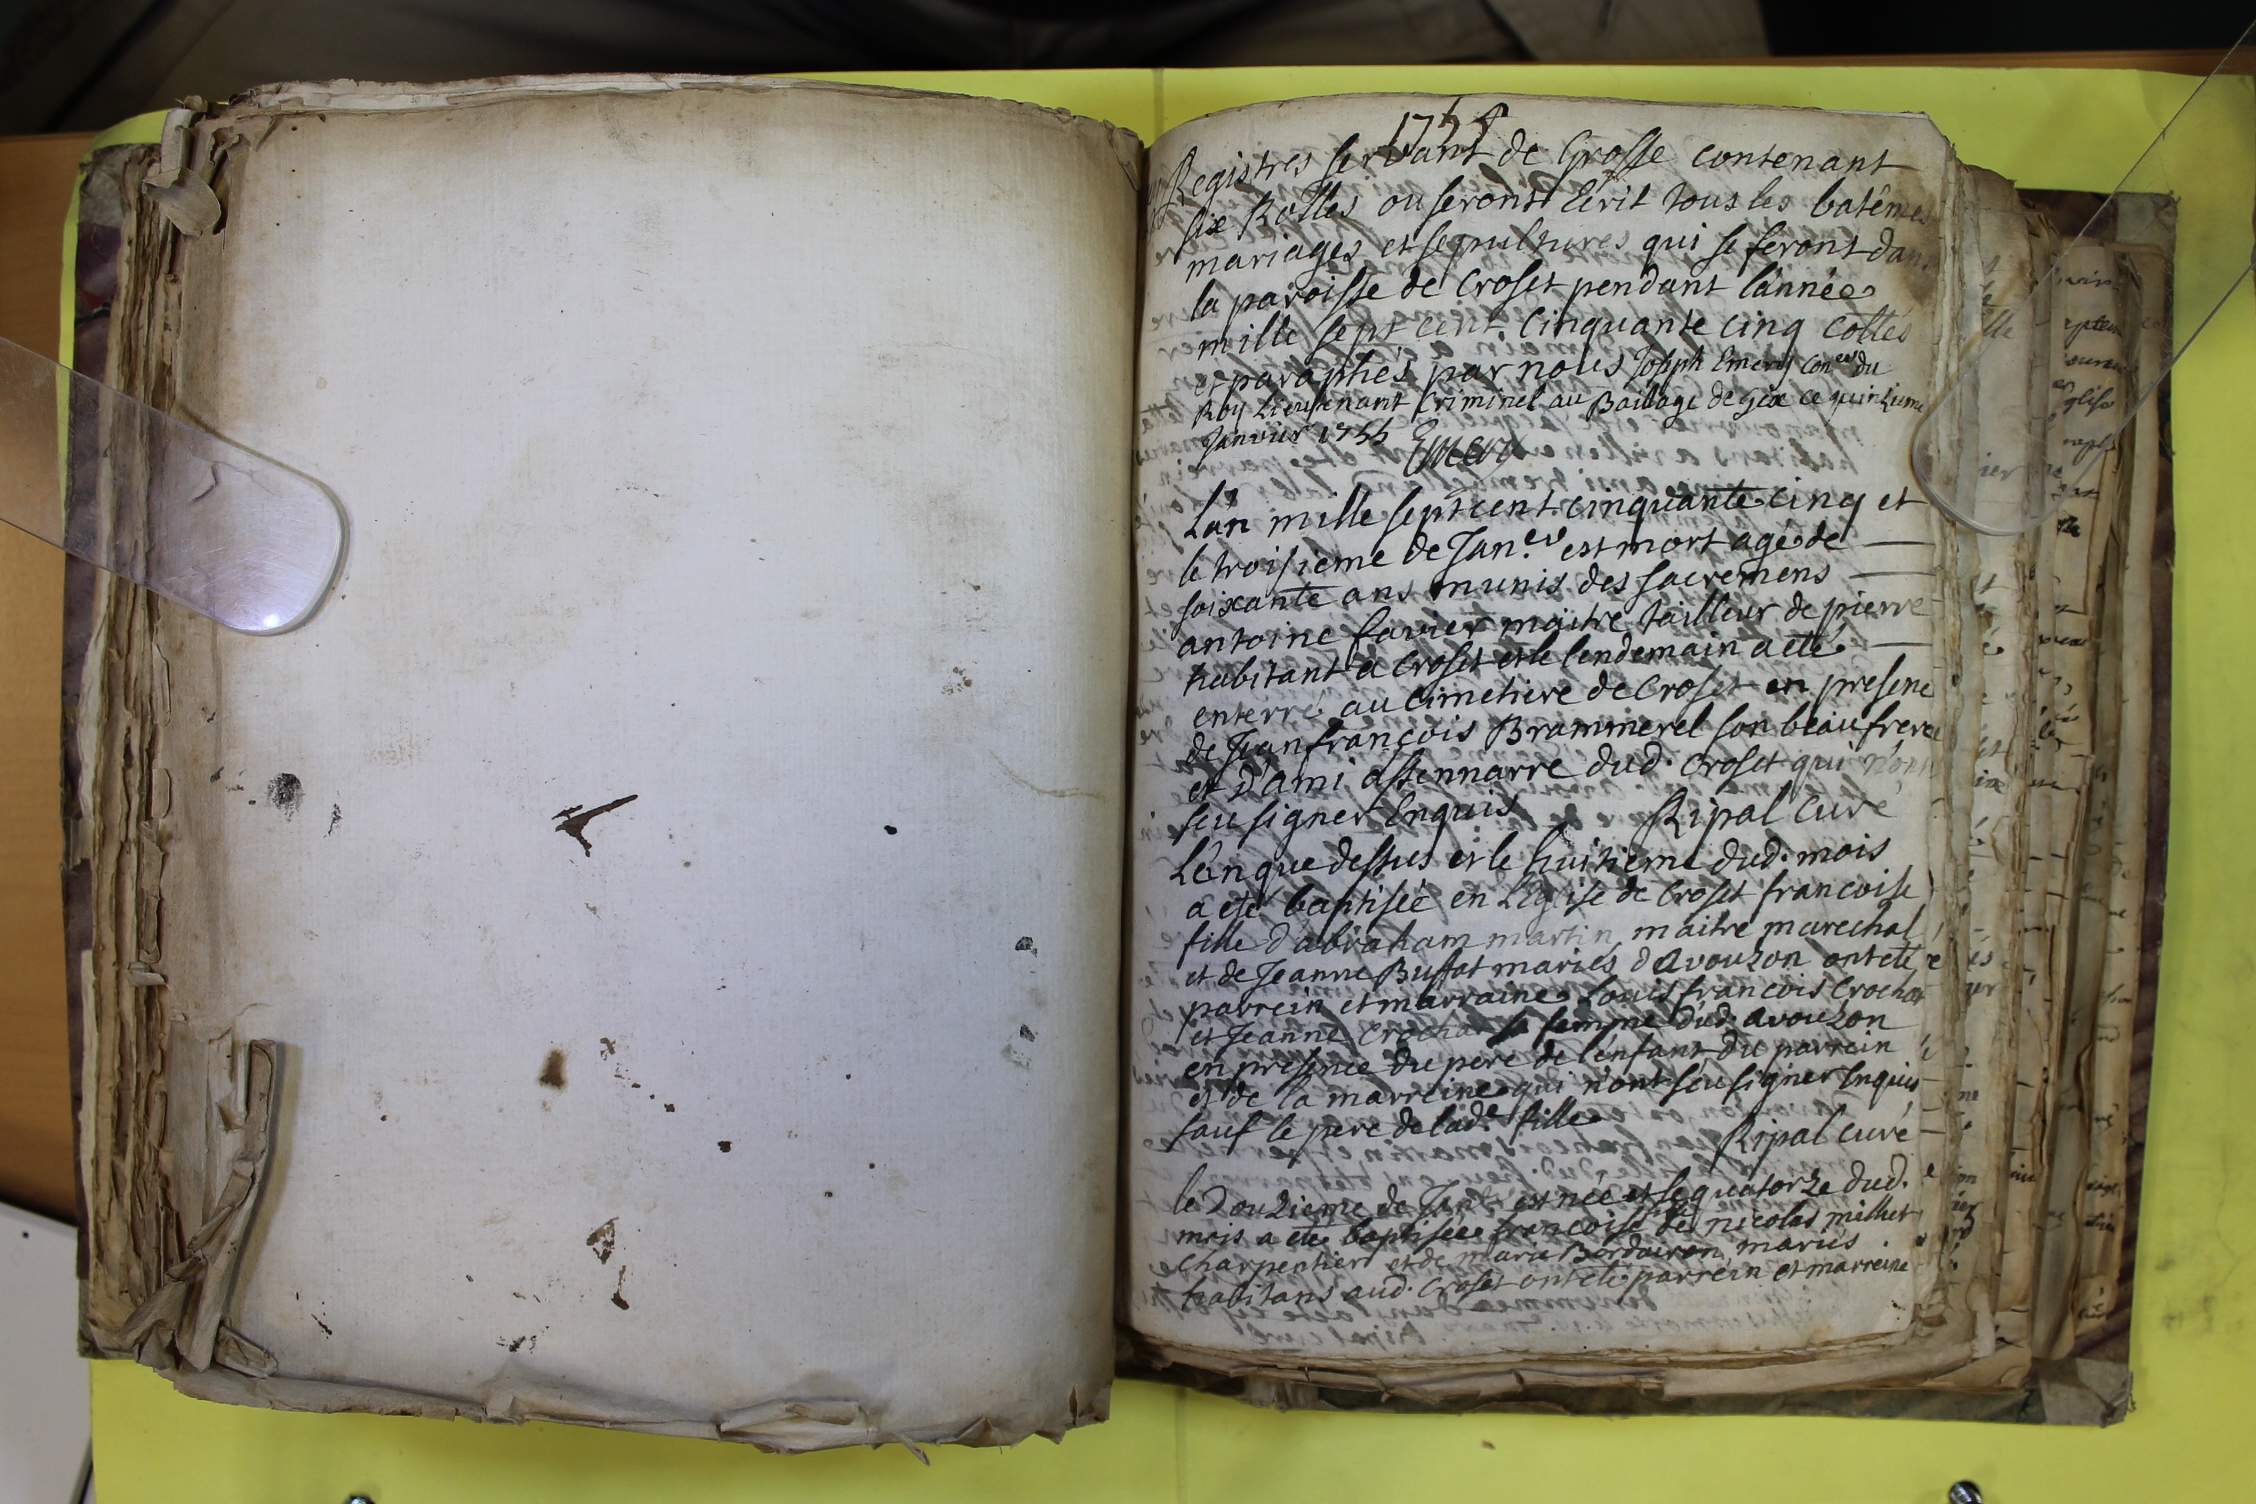 1755
Registres servant de Grosse contenant
six Rolles ou seront Ecrit tous les batêmes
mariages et sepultures qui se feront dans
la paroisse de Croset pendant l'année
mille sept cent cinquante cinq cottés
et paraphés par nous Joseph Emery Con.er du
Roy Lieutenant Criminel au Bailiage de Gex ce quinzieme
Janvier 1755 Emery
L'an mille sept cent cinquante cinq et
le troisieme de Jan.er est mort agé de
soixante ans munis des sacremens
antoine favier maitre tailleur de pierre
habitant a Croset et le lendemain a eté
enterré au Cimetiere de Croset en presence
de Jean françois Brammerel son beaufrere
et D'ami assennarre dud. Croset qui n'ont
seu signer Enquis Ripal Curé
L'an que dessus et le huitieme dud. mois
a eté baptisée en L'eglise de Croset francoise
fille d'abraham martin maitre marechal
et de Jeanne Buffat mariés d'avouzon ont eté
parrein et marraine Louis francois Crochat
et Jeanne Crochat sa femme dud. avouzon
en presence du pere de l'enfant du parrein
et de la marreine qui n'ont seu signer Enquis
sauf le pere de lad.e fille Ripal Curé
le Douzieme de Jan.er est née et le quatorze dud.
mois a eté baptisée francoise fille de nicolas
Charpentier et de marie mariés
habitans aud. Croset ont eté parrein et marreine